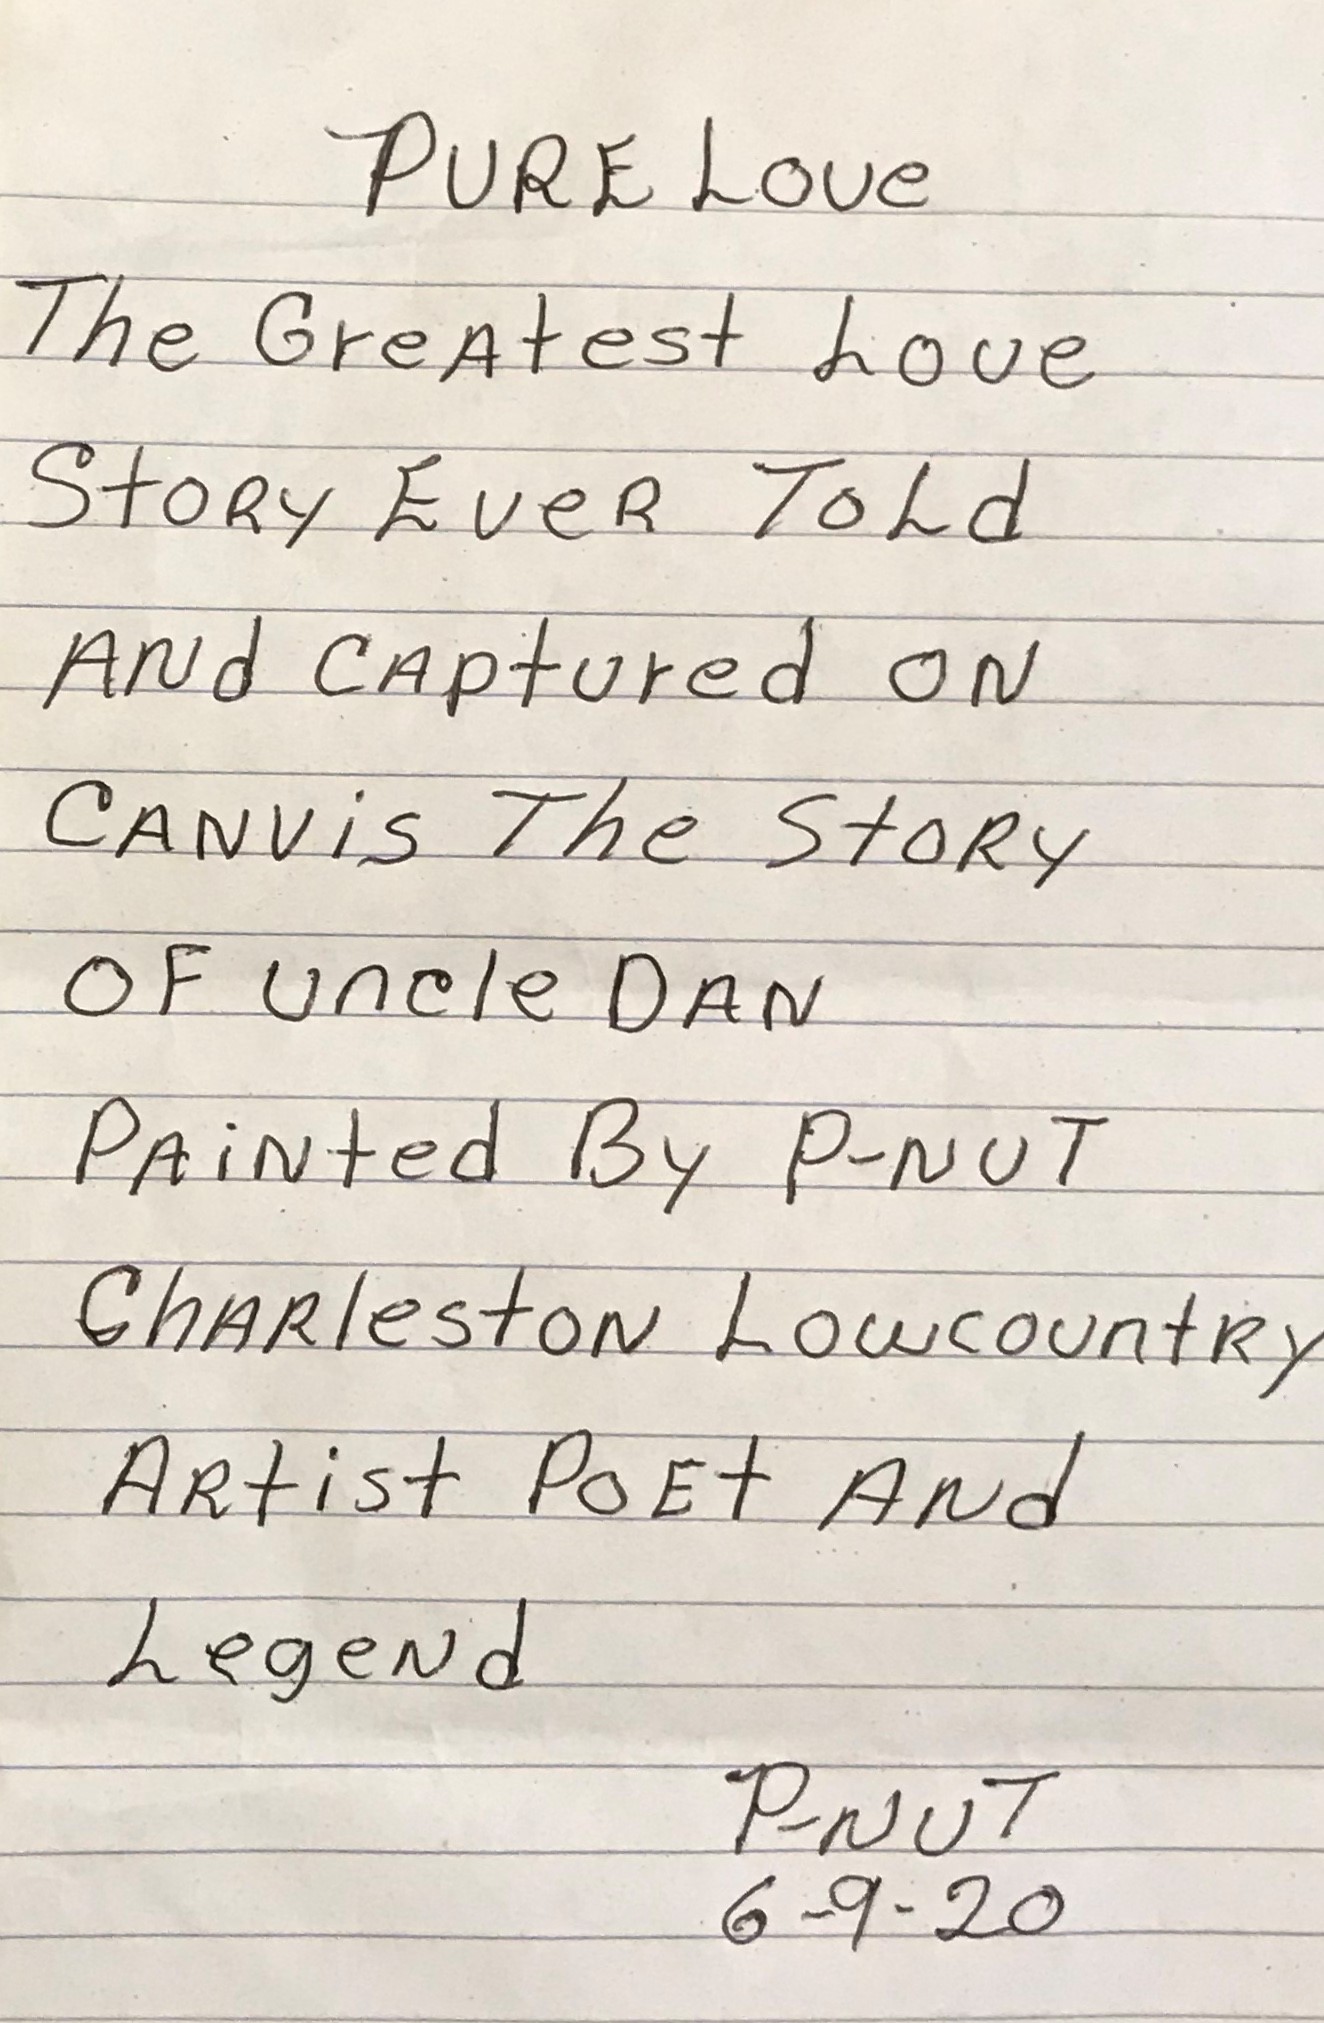 PURE Love
The GreAtest Love
StORY EveR ToLd
ANd CAptured ON
CANVis The StORY
OF uncle DAN
PAiNted By P-NUT
ChARlestON LowcountRY
ARtist PoEt ANd
LegeNd
P-NUT
6-9-20